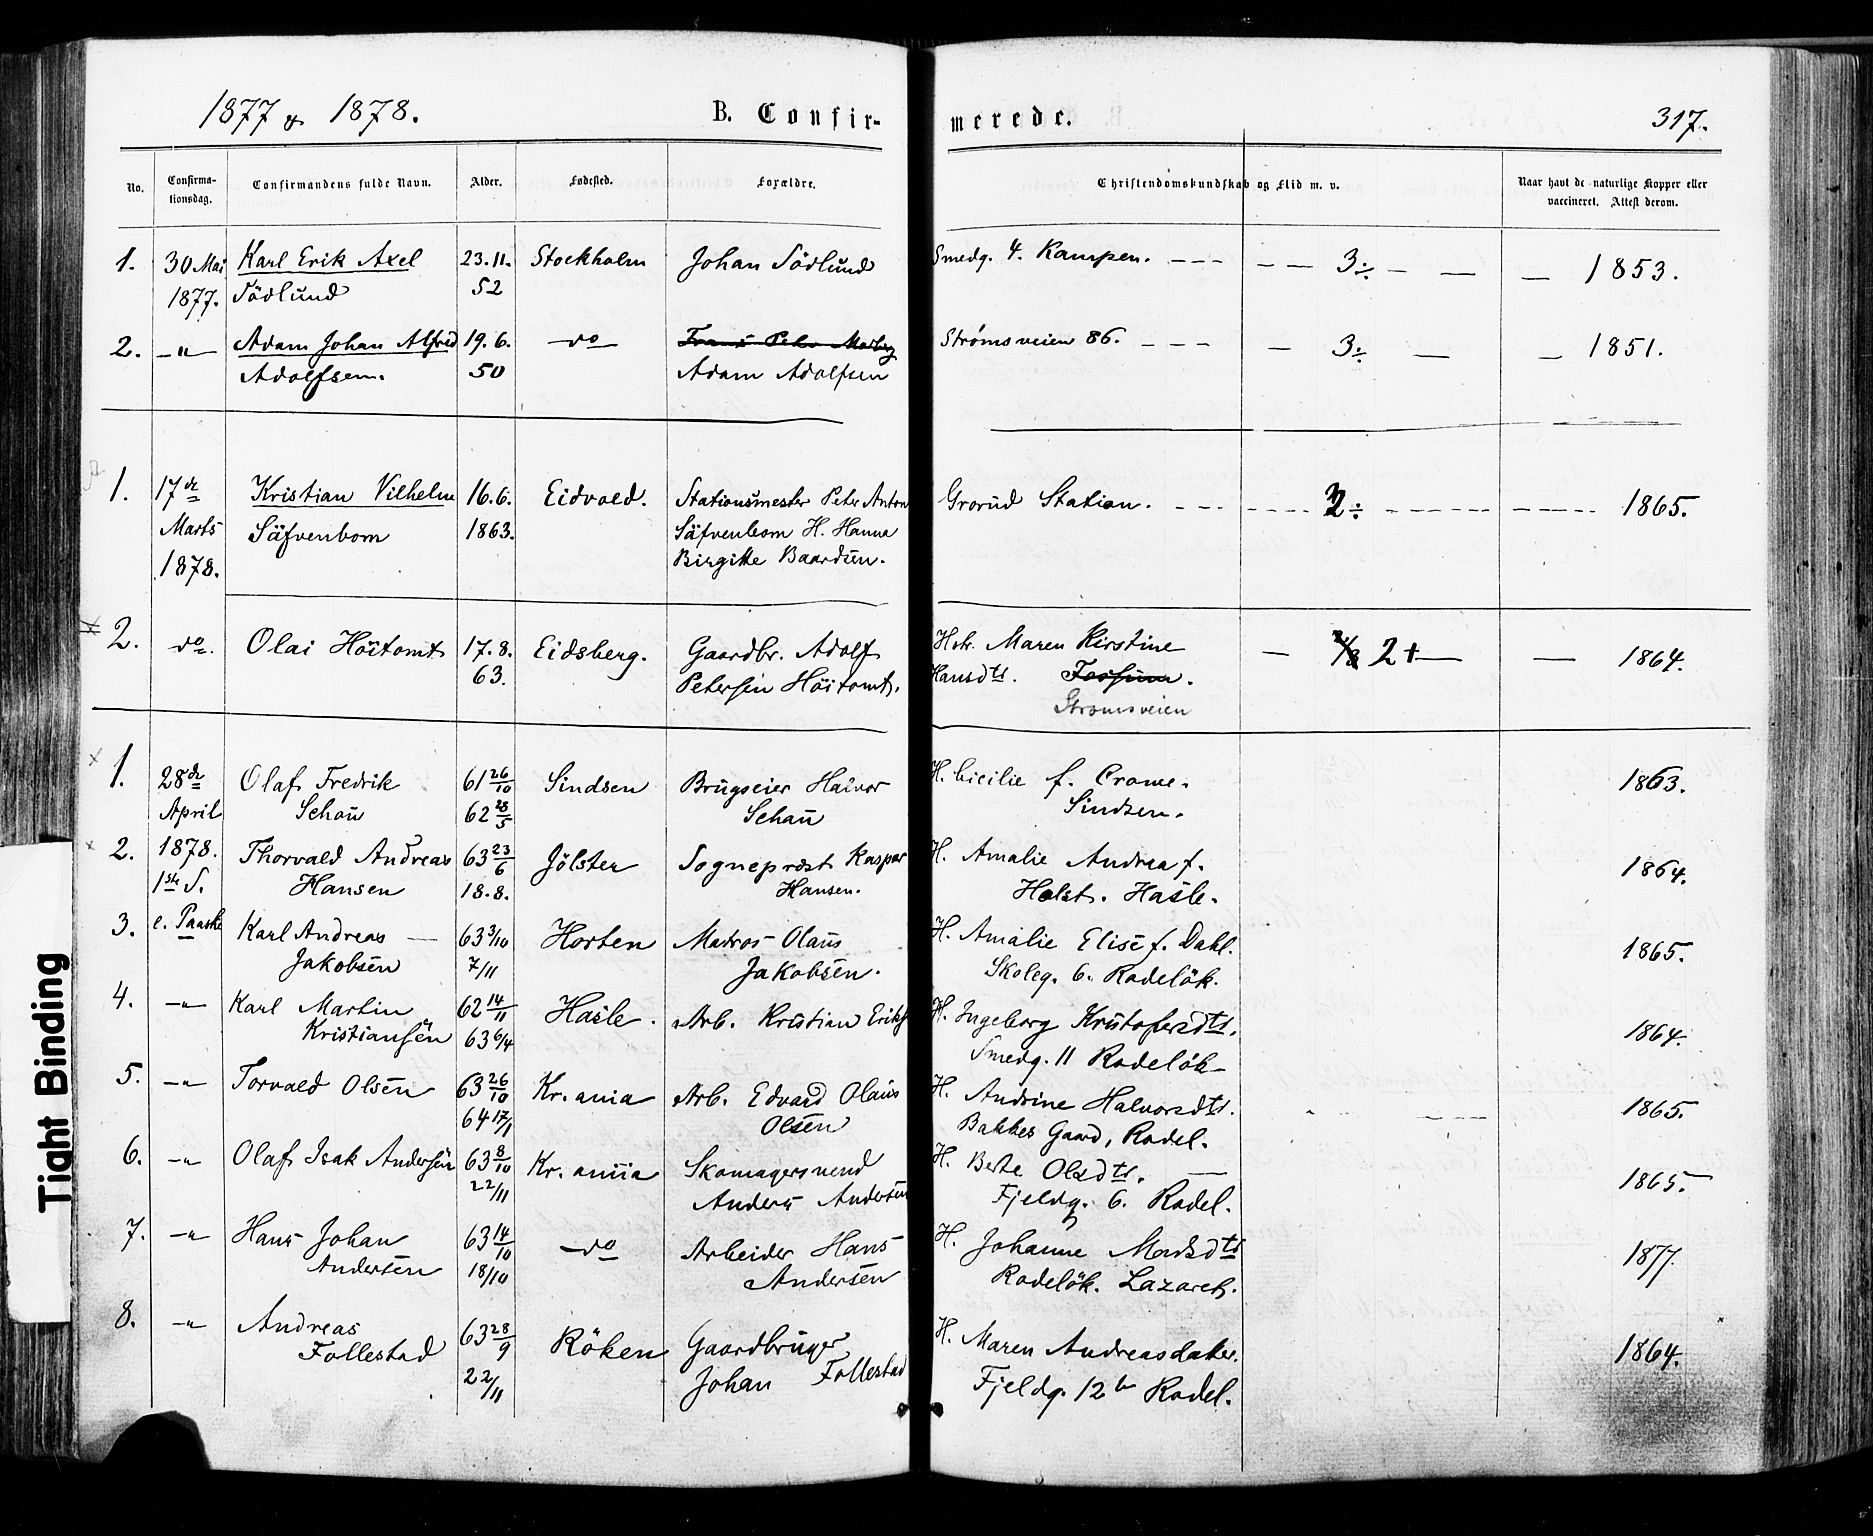 1877 & 1878.
B. Confir-
merede.
317.
No.
Confirma-
tionsdag.
Confirmandens fulde Navn.
Alder.
Fødested.
Forældre.
Christendomskundskab og Flid m. v.
Naar havt de naturlige Kopper eller
vaccineret. Attest derom.
1. 30 Mai Karl Erik Axel 23.11. Stockholm Johan Södlund Smedg. 4. Kampen. - - - - - 3÷ - - - 1853.
1877. Södlund 52
2. -"- Adam Johan Alfred 19.6. do Strømsveien 86. - - - - 3÷ - - 1851.
Adolfsen. 50 Adam Adolfsen
1. 17de Kristian Vilhelm 16.6. Eidvold. Stationsmester Peter Anton Grorud Station. 1865.
Marts Säfvenbom 1863. Säfvenbom H. Hanna
1878. Birgitte Baardsen.
2. do. Olai Höitomt 17.8. Eidsberg. Gaardbr. Adolf Hstr. Maren Kirstine - 2+ - - 1864.
63. Petersen Höitomt. Hansdtr. Fossum.
Strömsveien
1. 28de Olaf Fredrik 61 26/10 Sindsen Brugseier Halvor H. Cicilie f. Crome. 1863.
April Schou 62 28/5 Schou Sindsen.
2. 1878. Thorvald Andreas 63 23/6 Jölster Sognepræst Kaspar H. Amalie Andrea f. 1864.
1ste S. Hansen 18.8. Hansen. Holst. Hasle.
3. e. Paaske Karl Andreas - 63 3/10 Horten Matros Olaus H. Amalie Elise f. Dahl. 1865.
Jakobsen 7/11 Jakobsen. Skoleg. 6. Rodelök.
4. -"- Karl Martin 62 14/11 Hasle. Arb. Kristian Eriks H. Ingeborg Kristofersdtr. 1864.
Kristiansen 63 6/4 Smedg. 11 Rodelök
5. -"- Torvald Olsen 63 26/10 Kr.ania Arb. Edvard Olaus H. Andrine Halvorsdtr. 1865.
64 17/1 Olsen Bakkes Gaard, Rodel.
6. -"- Olaf Isak Andersen 63 8/10 Kr.ania Skomagersvend H. Berte Olsdtr. 1865.
22/11 Anders Andersen Fjeldg. 6. Rodel.
7. -"- Hans Johan 63 14/10 do Arbeider Hans H. Johanne Madsdtr 1877.
Andersen 18/10 Andersen Rodelök. Lazaret.
8. -"- Andreas 63 28/9 Röken Gaardbruger H. Maren Andreasdatter. 1864.
Follestad 22/11 Johan Follestad Fjeldg. 12 b Rodel.
Tight Binding